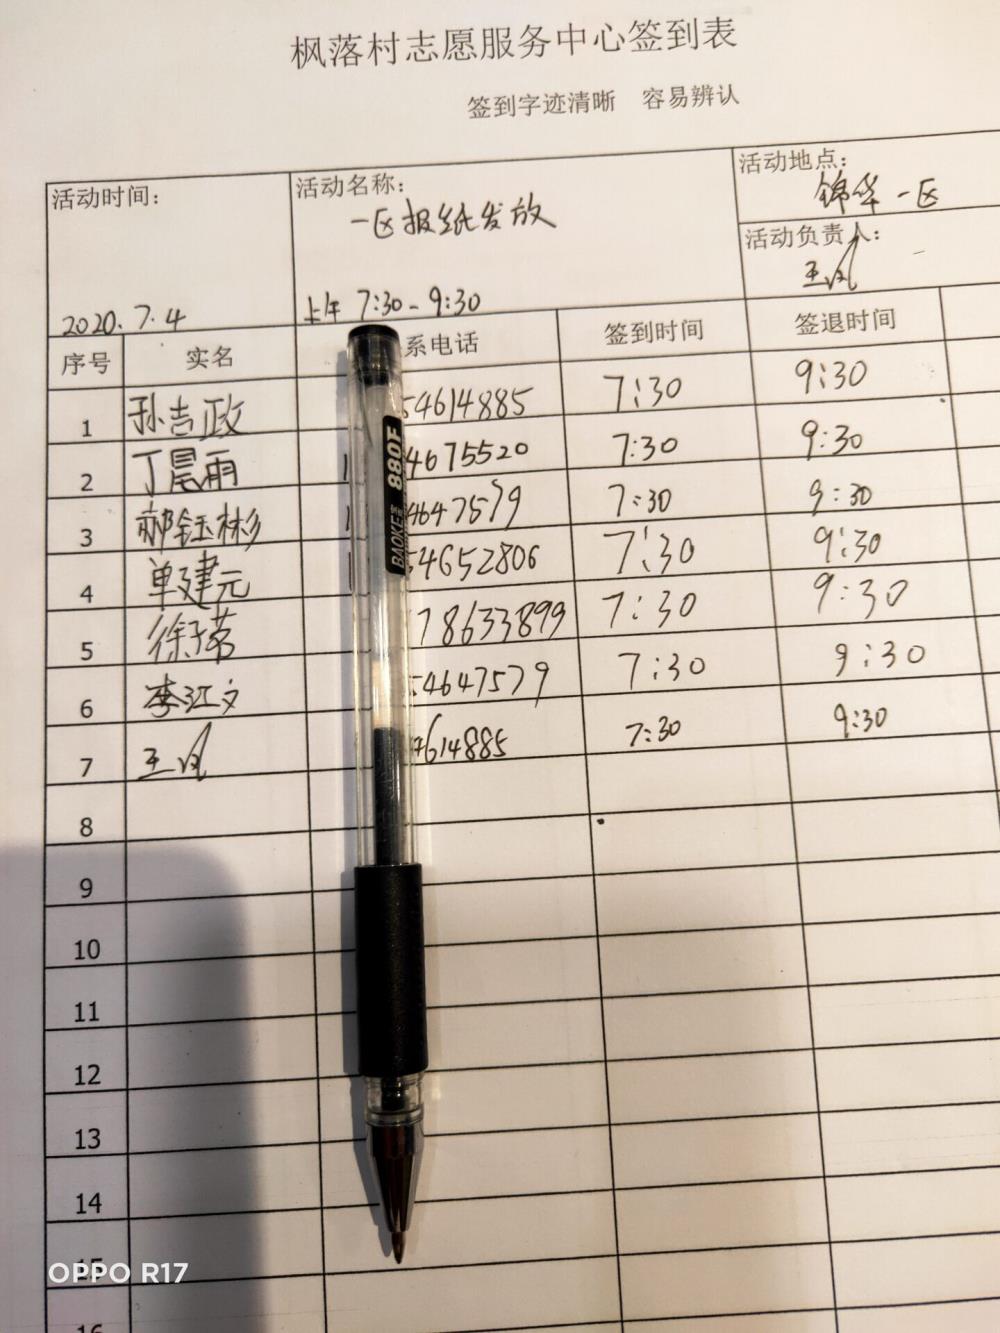 枫落村志愿服务中心签到表
签到字迹清晰 容易辨认
活动时间: 活动名称: 活动地点:
一区报纸发放 锦华一区
活动负责人:
王凤
2020.7.4 上午 7:30-9:30
序号 实名 系电话 签到时间 签退时间
1 孙吉政 54614885 7:30 9:30
2 丁晨雨 4675520 7:30 9:30
3 郝钰彬 4647579 7:30 9:30
4 单建元 54652806 7:30 9:30
5 78633899 7:30 9:30
6 李江文 54647579 7:30 9:30
7 王凤 4614885 7:30 9:30
8
9
10
11
12
13
14
15
16
BAOKE 880F
OPPO R17